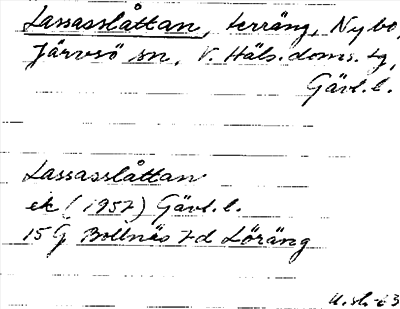 Lassasslåttan, terräng, Nybo,
Järvsö sn, V. Häls. doms. tg,
Gävl. l.
Lassasslåttan
ek (1957) Gävl. l.
15G Bollnäs 7d Löräng
U.sl.-63